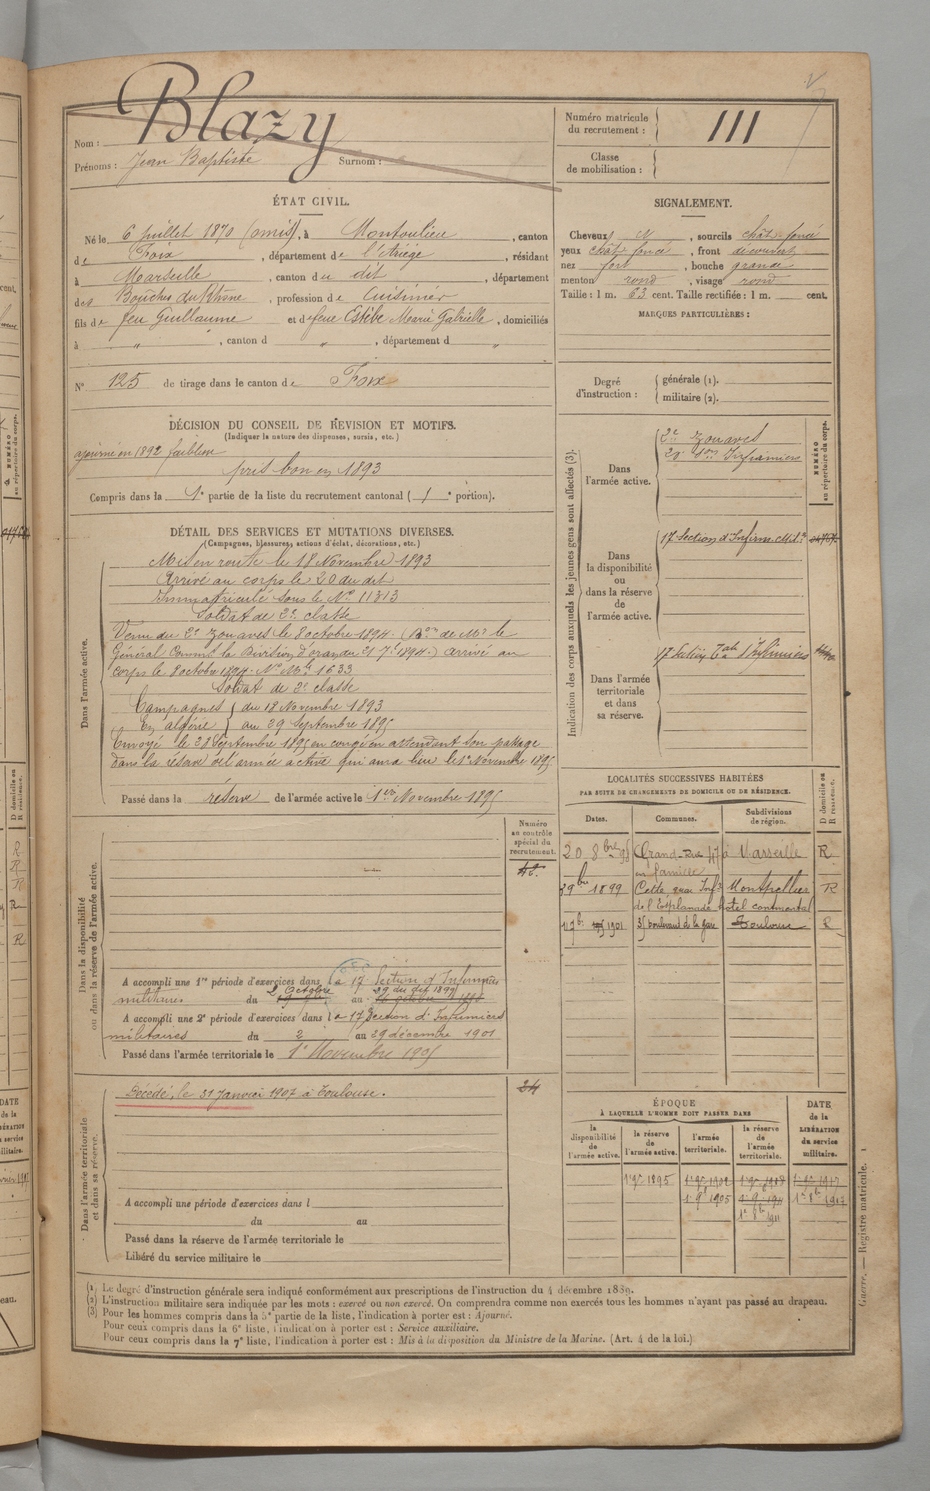 Nom : Blazy
Prénoms : Jean Baptiste Surnom :
ÉTAT CIVIL.
Né le 6 Juillet 1870 (omis), à Montoulieu, canton
de Foix, département de l'Ariège, résidant
à Marseille, canton du dit, département
des Bouches du Rhône, profession de Cuisinier
fils de feu Guillaume et de feue Estèbe Marie Gabrielle, domiciliés
à " , canton d " , département d "
N° 125 de tirage dans le canton de Foix
DÉCISION DU CONSEIL DE RÉVISION ET MOTIFS.
(Indiquer la nature des dispenses, sursis, etc.)
ajourné en 1892 faiblesse
pris bon en 1893
Compris dans la 1e partie de la liste du recrutement cantonal (1e portion).
DÉTAIL DES SERVICES ET MUTATIONS DIVERSES.
(Campagnes, blessures, actions d'éclat, décorations, etc.)
Dans l'armée active.
Mis en route le 18 Novembre 1893
Arrivé au corps le 20 du dit
Immatriculé sous le No 11313
Soldat de 2e classe
Venu du 2e Zouaves le 8 octobre 1894. (Don de Mr le
Général Commt la Division d'Oran du 21 7bre 1894.) Arrivé au
corps le 8 octobre 1894. No Mle 1633
Soldat de 2e classe
Campagnes } du 18 Novembre 1893
En algérie } au 29 Septembre 1895
Envoyé le 28 Septembre 1895 en congé en attendant son passage
dans la réserve de l'armée active qui aura lieu le 1er Novembre 1895
Passé dans la réserve de l'armée active le 1er Novembre 1895
Dans la disponibilité
ou dans la réserve de l'armée active.
Numéro
au contrôle
spécial du
recrutement.
A accompli une 1re période d'exercices dans la 17e Section d'Infirmiers
militaires du 2 Octobre au 29 du dit 1899
A accompli une 2e période d'exercices dans la 17e Section d'Infirmiers
militaires du 2 au 29 décembre 1901
Passé dans l'armée territoriale le 1er Novembre 1905
Dans l'armée territoriale
et dans sa réserve.
Décédé, le 31 Janvier 1907 à Toulouse.
24
A accompli une période d'exercices dans l
du au
Passé dans la réserve de l'armée territoriale le
Libéré du service militaire le
Numéro matricule
du recrutement : 111
Classe
de mobilisation :
SIGNALEMENT.
Cheveux et , sourcils chât. foncé
yeux chât. foncé , front découvert
nez fort , bouche grande
menton rond , visage rond
Taille : 1 m. 63 cent. Taille rectifiée : 1 m. cent.
MARQUES PARTICULIÈRES :
Degré
d'instruction :
générale (1).
militaire (2).
Indication des corps auxquels les jeunes gens sont affectés (3).
NUMÉRO
au répertoire du corps.
Dans
l'armée active.
2e Zouaves
20e Son Infirmiers
Dans
la disponibilité
ou
dans la réserve
de
l'armée active.
17e Section d'Infirm. Mil.res
Dans l'armée
territoriale
et dans
sa réserve.
17e Section Tale d'Infirmiers
LOCALITÉS SUCCESSIVES HABITÉES
PAR SUITE DE CHANGEMENTS DE DOMICILE OU DE RÉSIDENCE.
Dates. Communes. Subdivisions
de région. D domicile ou
R résidence.
20 8bre 95 Grand-Rue 47 à Marseille R
en famille
9bre 1899 Cette, quai Infr Montpellier R
de l'Esplanade hôtel continental
1901 35 boulevard de la gare Toulouse R
ÉPOQUE
À LAQUELLE L'HOMME DOIT PASSER DANS
la
disponibilité
de
l'armée active.
la réserve
de
l'armée active.
l'armée
territoriale.
la réserve
de
l'armée
territoriale.
DATE
de la
LIBÉRATION
du service
militaire.
1er 9bre 1895
1er 9bre 1905
1911
1917
Guerre. — Registre matricule. 1
(1) Le degré d'instruction générale sera indiqué conformément aux prescriptions de l'instruction du 4 décembre 1889.
(2) L'instruction militaire sera indiquée par les mots : exercé ou non exercé. On comprendra comme non exercés tous les hommes n'ayant pas passé au drapeau.
(3) Pour les hommes compris dans la 5e partie de la liste, l'indication à porter est : Ajourné.
Pour ceux compris dans la 6e liste, l'indication à porter est : Service auxiliaire.
Pour ceux compris dans la 7e liste, l'indication à porter est : Mis à la disposition du Ministre de la Marine. (Art. 4 de la loi.)